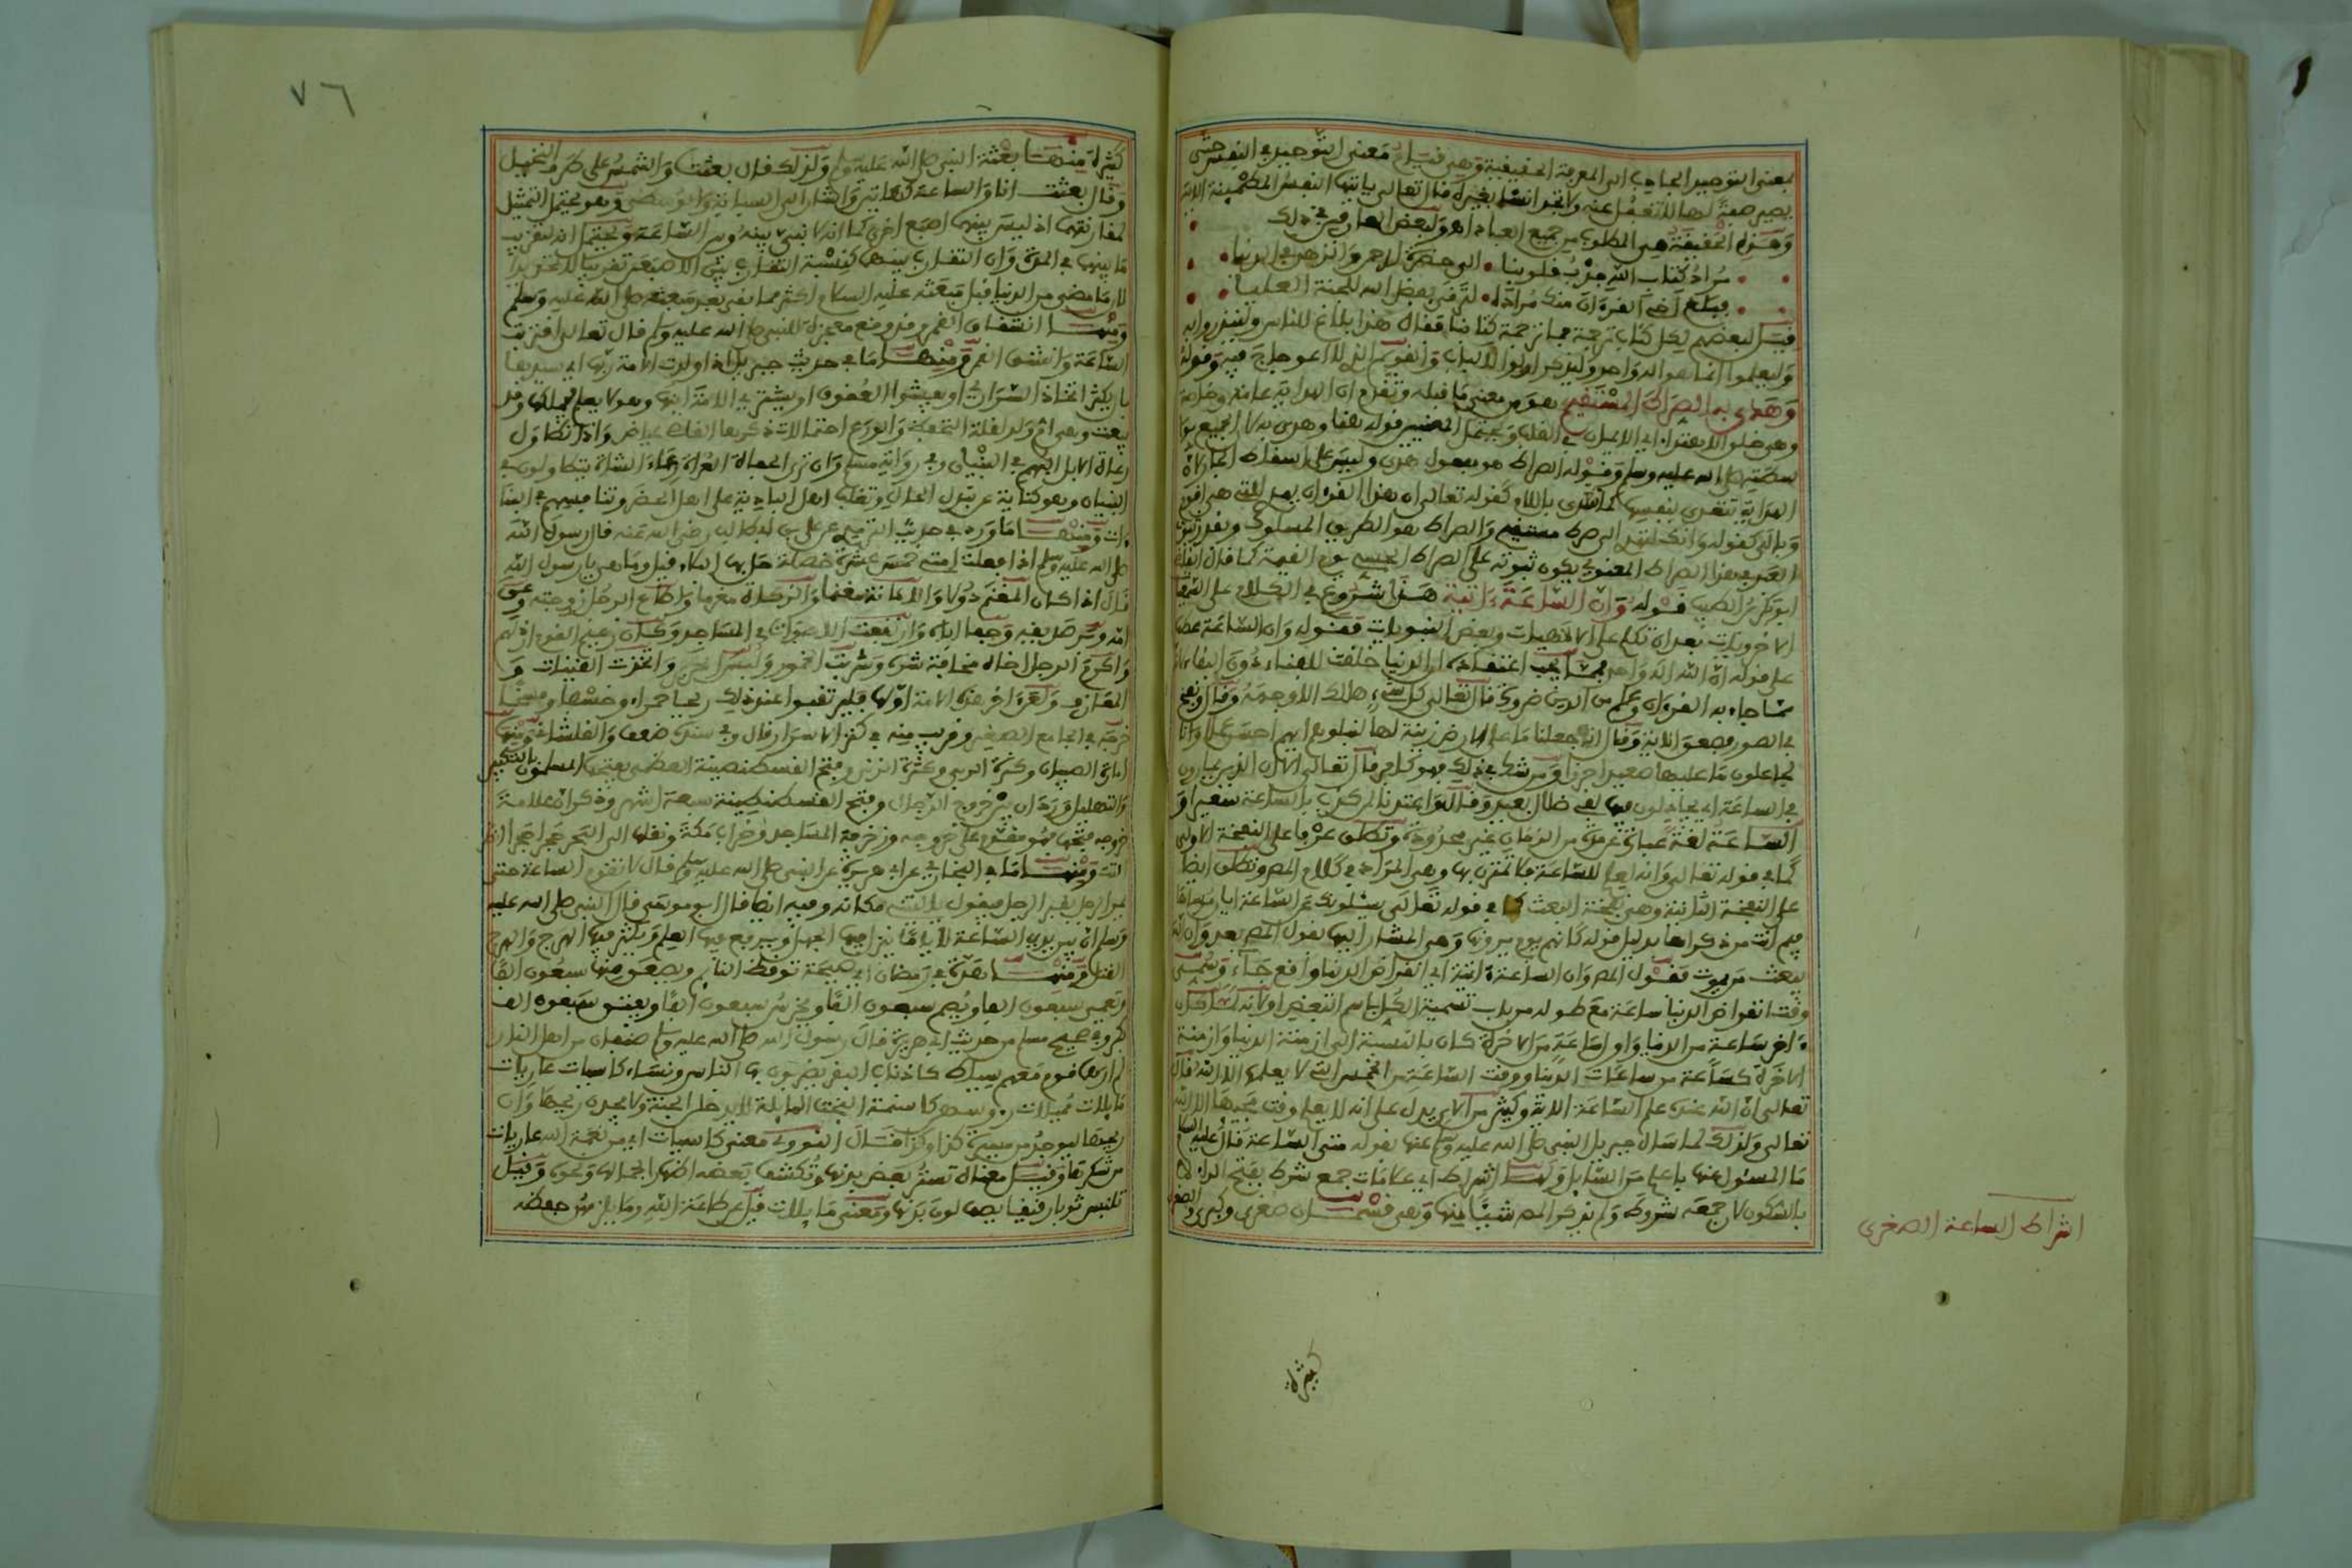 بمعنى التوحيد الجاذب الى المعرفة الحقيقية وهي قيام معنى التوحيد في النفس حتى
يصير صفة لها لا تغفل عنه ولا تجد انسا بغيره قال تعالى يايتها النفس المطمئنة الاية
وهذه الحقيقة هي المطلوب من جميع العباد اهـ ولبعض العارفين في ذلك
مراد كتاب الله جذب قلوبنا الى حضرة الرحمن والزهد في الدنيا
فبلغ اخي القرءان منك مراده لترقى بفضل الله للجنة العليا
قيل لبعضهم لكل كتاب ترجمة فما ترجمة كتابنا فقال هذا بلاغ للناس ولينذروا به
وليعلموا انما هو اله واحد وليذكر اولوا الالباب والقويم الذي لا اعوجاج فيه وقوله
وهدى به الصراط المستقيم هو من معنى ما قبله وتقدم ان الهداية عامة وخاصة
وهي خلق الاهتداء اي الايمان في القلب ويحتمل المعنيين قوله هنا وهدى به لا الجميع بوا
سطته صلى الله عليه وسلم وقوله الصراط هو مفعول هدى وليس على اسقاط الجار لان
الهداية تتعدى بنفسها كما تتعدى باللام كقوله تعالى ان هذا القرءان يهدي للتي هي اقوم
وبالى كقوله وانك لتهدي الى صراط مستقيم والصراط هو الطريق المسلوك وبقدر تثبت
العبد في هذا الصراط المعنوي يكون ثبوته على الصراط الحسي يوم القيمة كما قال القاضي
ابو بكر بن الطيب قوله وان الساعة ءاتية هذا شروع في الكلام على السمعيات
الاخرويات بعد ان تكلم على الالاهيات وبعض النبويات فقوله وان الساعة عطف
على قوله ان الله اله واحد مما يجب اعتقاده ان الدنيا خلقت للفناء دون البقاء لان
مما جاء به القرءان وعلم من الدين ضرورة قال تعالى كل شيء هالك الا وجهه وقال ونفخ
في الصور فصعق الاية وقال انا جعلنا ما على الارض زينة لها لنبلوهم ايهم احسن عملا وانا
لجاعلون ما عليها صعيدا جرزا ومن شك في ذلك فهو كافر قال تعالى الا ان الذين يمارون
في الساعة اي يجادلون فيها لفي ضلال بعيد وقال واعتدنا لمن كذب بالساعة سعيرا و
الساعة لغة عبارة عن مدة من الزمان غير محدودة وتطلق عرفا على النفخة الاولى
كما في قوله تعالى وانه لعلم للساعة فلا تمترن بها وهي المراد في كلام المص وتطلق ايضا
على النفخة الثانية وهي نفخة البعث كما في قوله تعالى يسئلونك عن الساعة ايان مرساها
فيم انت من ذكراها بدليل قوله كانهم يوم يرونها وهي المشار اليها بقول المص بعد وان الله
يبعث من يموت فقول المص وان الساعة ءاتية اي انقراض الدنيا واقع جاء وسمي
وقت انقراض الدنيا ساعة مع طوله من باب تسمية الكل باسم البعض او لانه لما كان
ءاخر ساعة من الدنيا واول ساعة من الاخرة كان بالنسبة الى ازمنة الدنيا وازمنة
الاخرة كساعة من ساعات الدنيا ووقت الساعة من الخمس التي لا يعلمها الا الله قال
تعالى ان الله عنده علم الساعة الاية وكثير من الاي يدل على انه لا يعلم وقت مجيئها الا الله
تعالى ولذلك لما سال جبريل النبي صلى الله عليه وسلم عنها بقوله متى الساعة قال عليه السلام
ما المسئول عنها باعلم من السايل ولها اشراط اي علامات جمع شرط بفتح الراء لا
بالسكون لان جمعه شروط ولم يذكر المص شيئا منها وهي قسمان صغرى وكبرى والصغرى
اشراط الساعة الصغرى
كثيرة
٧٦
كثيرة منها بعثة النبي صلى الله عليه وسلم ولذلك قال بعثت والشمس على طرف النخيل
وقال بعثت انا والساعة كهاتين واشار الى السبابة والوسطى وهو يحتمل التمثيل
لمقارنتهما اذ ليس بينهما اصبع اخرى كما انه لا نبي بينه وبين الساعة ويحتمل انه لتقريب
ما بينهما في المدة وان التقارب بينهما كنسبة التقارب بين الاصبعين تقريبا لا تحديدا
لان ما مضى من الدنيا قبل مبعثه عليه السلام اكثر مما بقي بعد مبعثه صلى الله عليه وسلم
ومنها انشقاق القمر وقد وقع معجزة للنبي صلى الله عليه وسلم قال تعالى اقتربت
الساعة وانشق القمر ومنها ما في حديث جبريل اذا ولدت الامة ربها اي سيدها
بان يكثر اتخاذ السراري او يفشوا العقوق او يشتري الامة ابنها وهو لا يعلم
رعاة الابل البهم في البنيان وفي رواية مسلم وان ترى الحفاة العراة رعاء الشاة يتطاولون في
البنيان وهو كناية عن تبدل الحال وتغلب اهل البادية على اهل الحضر وتنافسهم في البنا
ءات ومنها ما ورد في حديث الترمذي عن علي بن ابي طالب رضي الله عنه قال رسول الله
صلى الله عليه وسلم اذا فعلت امتي خمس عشرة خصلة حل بها البلاء قيل وما هي يا رسول الله
قال اذا كان المغنم دولا والامانة مغنما والزكاة مغرما واطاع الرجل زوجته وعق
امه وبر صديقه وجفا اباه وارتفعت الاصوات في المساجد وكان زعيم القوم ارذلهم
واكرم الرجل اخاه مخافة شره وشربت الخمور ولبس الحرير واتخذت القينات و
المعازف ولعن ءاخر هذه الامة اولها فليرتقبوا عند ذلك ريحا حمراء وخسفا ومسخا
خرجه في الجامع الصغير وقريب منه في كنز الاسرار قال وفي سنده ضعف ومنها
امارة الصبيان وكثرة الربى وكثرة الزنى وفتح القسطنطينة العظمى يفتحها المسلمون بالتكبير
والتهليل وورد ان بين خروج الدجال وفتح القسطنطينة سبعة اشهر وذكر ان علامة
خروجه فتحها فهو مقدم على خروجه وزخرفة المساجد وخراب مكة ونقلها الى البحر حجرا حجرا
ومنها ما في البخاري عن ابي هريرة عن النبي صلى الله عليه وسلم قال لا تقوم الساعة حتى
يمر الرجل بقبر الرجل فيقول يا ليتني مكانه وفيه ايضا قال ابو موسى قال النبي صلى الله عليه
وسلم ان بين يدي الساعة لاياما ينزل فيها الجهل ويرفع فيها العلم ويكثر فيها الهرج والهرج
القتل ومنها هدة في رمضان اي صيحة توقظ النايم ويصعق منها سبعون الفا
ويعمى سبعون الفا ويصم سبعون الفا ويخرس سبعون الفا ويعتق سبعون الف
بكر وفي صحيح مسلم من حديث ابي هريرة قال رسول الله صلى الله عليه وسلم صنفان من اهل النار
لم ارهما قوم معهم سياط كاذناب البقر يضربون بها الناس ونساء كاسيات عاريات
مايلات مميلات رءوسهن كاسنمة البخت المايلة لا يدخلن الجنة ولا يجدن ريحها وان
ريحها ليوجد من مسيرة كذا وكذا قال النووي معنى كاسيات اي من نعمة الله عاريات
من شكرها وقيل معناه تستر بعض بدنها وتكشف بعضه اظهارا لجمالها ونحوه وقيل
تلبس ثوبا رقيقا يصف لون بدنها ومعنى مايلات قيل عن طاعة الله وما يلزمهن حفظه